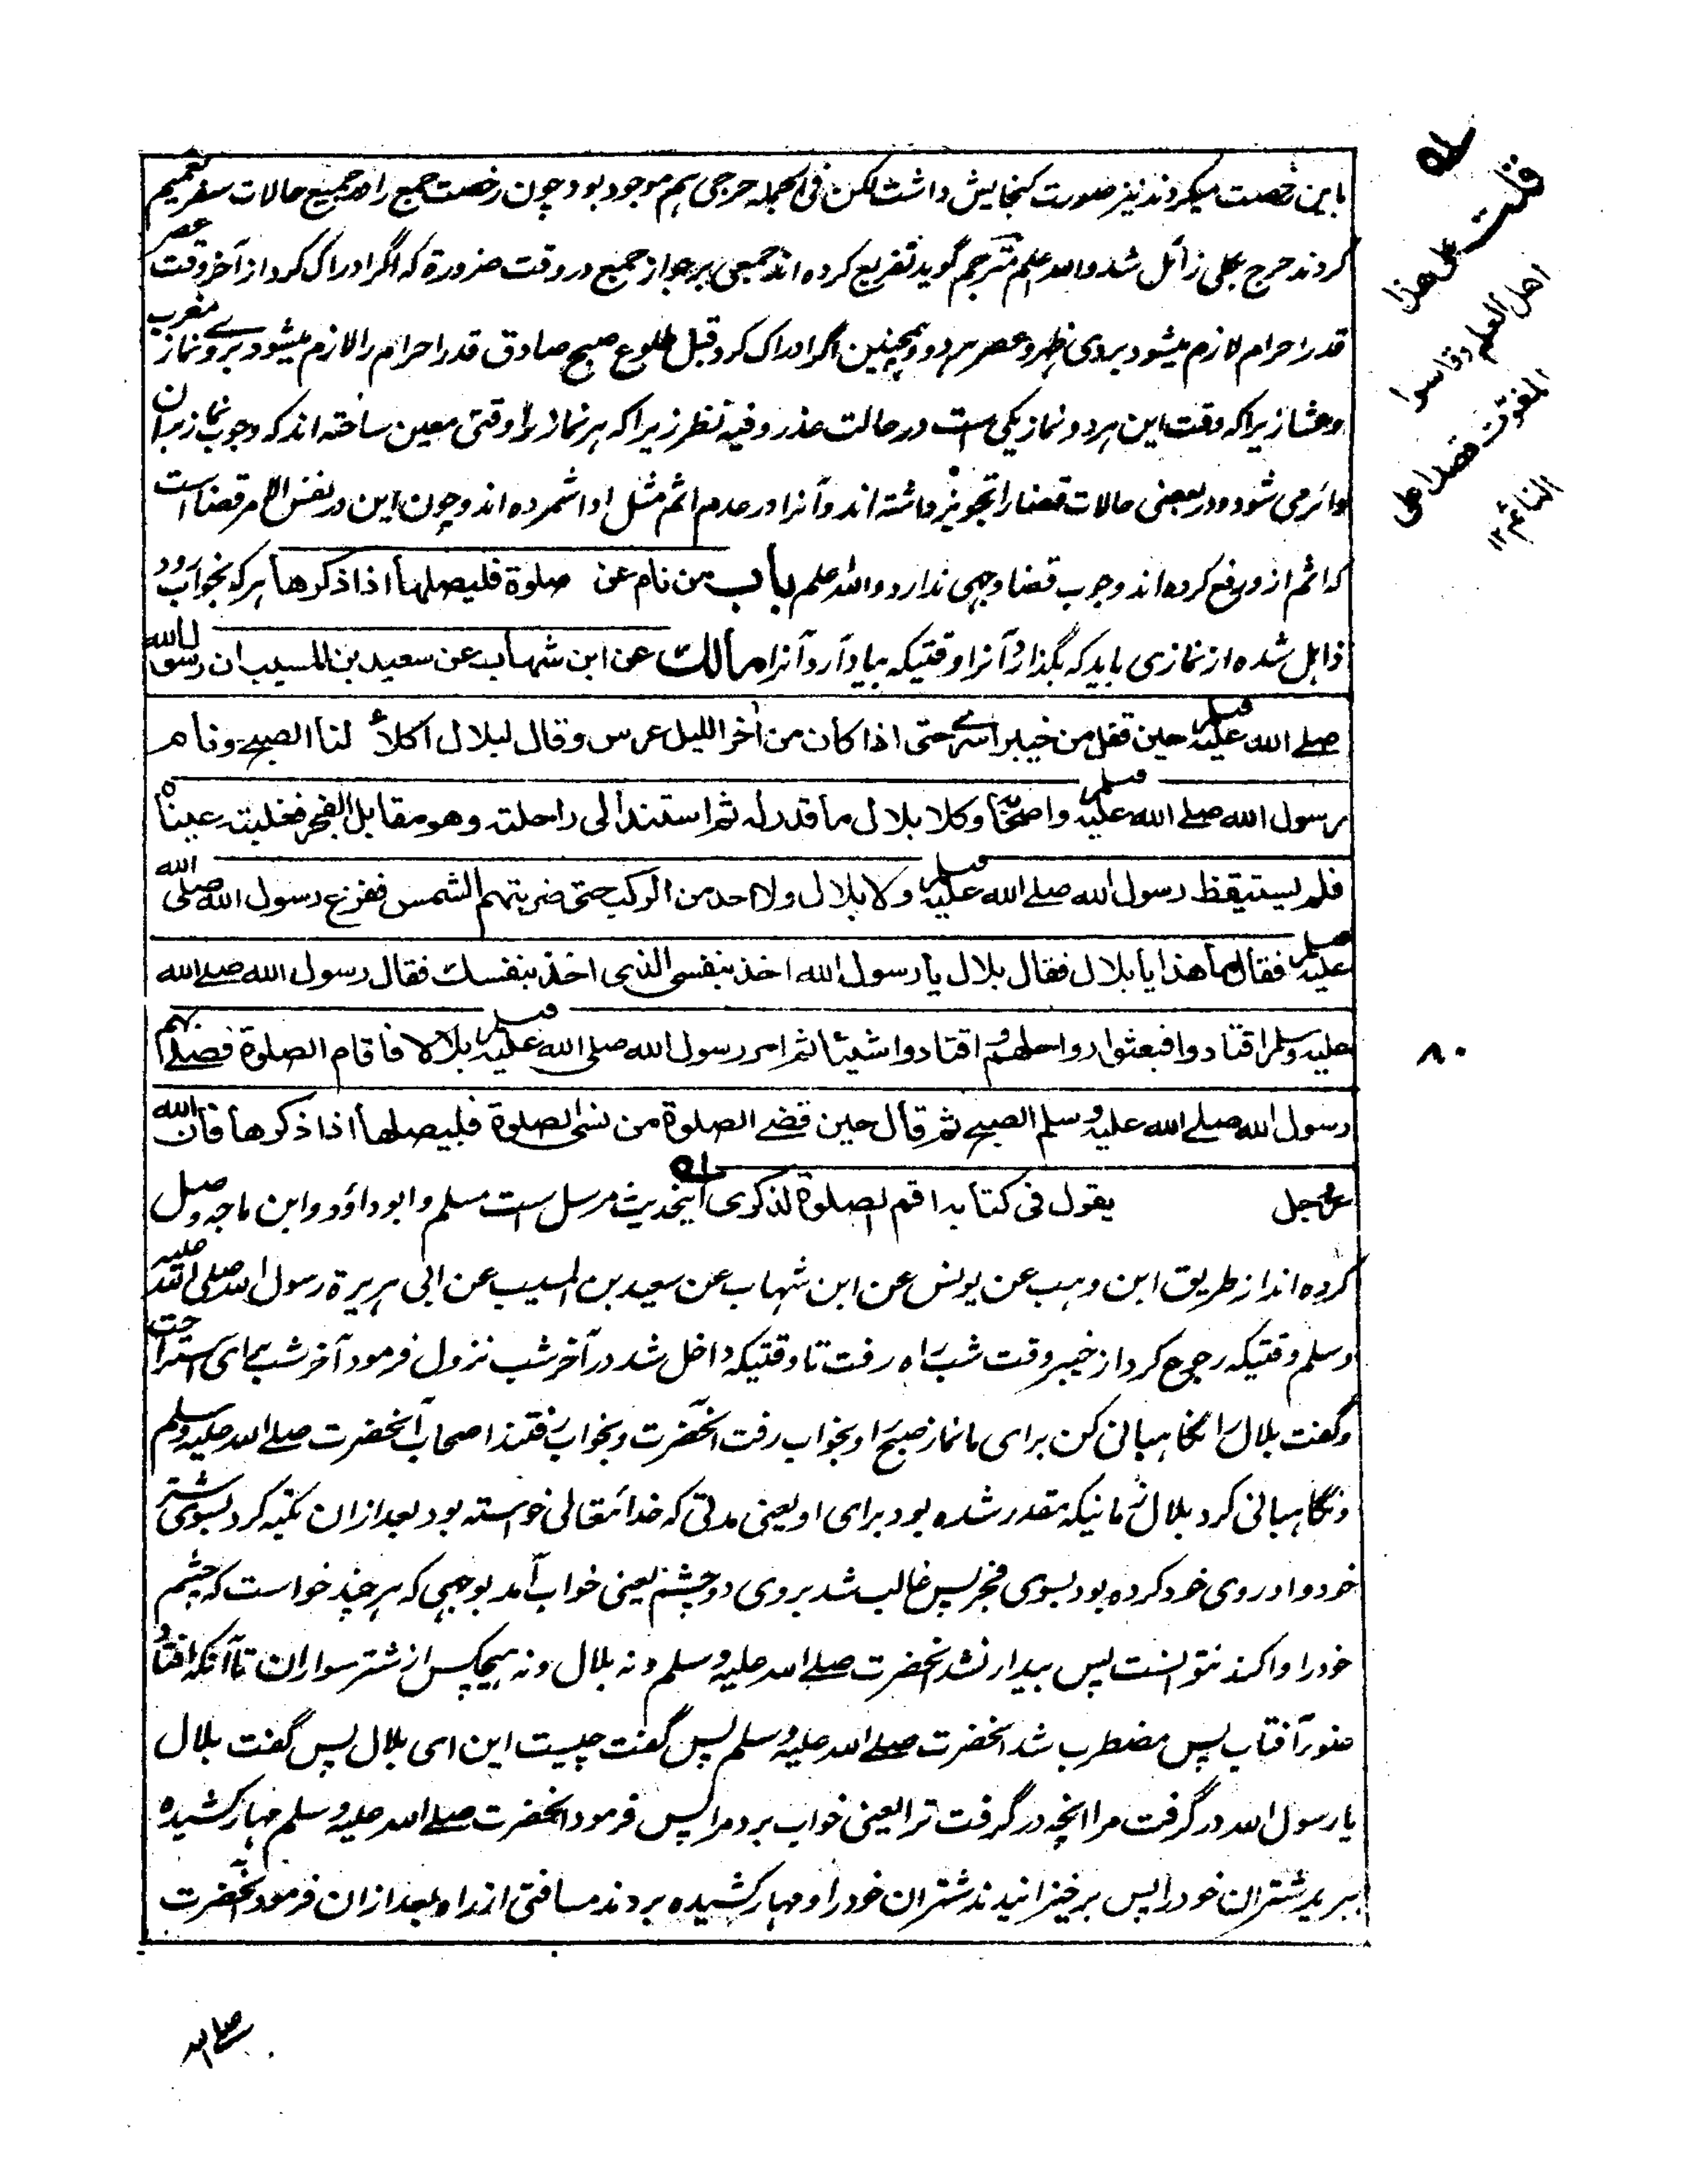 باین رخصت میکردند نیز صورت گنجایش داشت لکن فی الجمله حرجی هم موجود بود چون رخصت جمع را در جمیع حالات سفر تعمیم
کردند حرج بکلی زائل شد والله اعلم مترجم گوید تفریع کرده اند جمعی بر جواز جمع در وقت ضرورة که اگر ادراک کرد از آخر وقت عصر
قدر احرام لازم میشود بروی ظهر و عصر هر دو و همچنین اگر ادراک کرد قبل طلوع صبح صادق قدر احرام را لازم میشود بروے نماز مغرب
و عشا زیرا که وقت این هر دو نماز یکی است در حالت عذر و فیه نظر زیرا که هر نماز را وقتی معین ساخته اند که وجوب نماز بران
دائر می شود و در بعضی حالات قضا را تجویز داشته اند و آنرا در عدم اثم مثل ادا شمرده اند و چون این در نفس الامر قضا است
که اثم ازو رفع کرده اند وجوب قضا وجهی ندارد والله اعلم باب من نام عن صلوة فلیصلها اذا ذکرها هر که بخواب رود
ذاهل شده از نمازی باید که بگذارد آنرا وقتیکه بیاد آرد آنرا مالك عن ابن شهاب عن سعید بن المسیب ان رسول الله
صلے الله علیه وسلم حین قفل من خیبر اسرے حتی اذا کان من آخر اللیل عرس وقال لبلال اکلأ لنا الصبح ونام
رسول الله صلے الله علیه وسلم واصحابه وکلا بلال ما قدر له ثم استند الی راحلته وهو مقابل الفجر فغلبته عیناه
فلم یستیقظ رسول الله صلے الله علیه وسلم ولا بلال ولا احد من الرکب حتی ضربتهم الشمس ففزع رسول الله صلی الله
علیه وسلم فقال ما هذا یا بلال فقال بلال یا رسول الله اخذ بنفسی الذی اخذ بنفسك فقال رسول الله صلے الله
علیه وسلم اقتادوا فبعثوا رواحلهم واقتادوا شیئا ثم امر رسول الله صلی الله علیه وسلم بلالا فاقام الصلوة فصلے بهم
رسول الله صلے الله علیه وسلم الصبح ثم قال حین قضے الصلوة من نسی الصلوة فلیصلها اذا ذکرها فان الله
عز وجل یقول فی کتابه اقم الصلوة لذکری اینحدیث مرسل است مسلم و ابو داؤد و ابن ماجه وصل
کرده اند از طریق ابن وهب عن یونس عن ابن شهاب عن سعید بن المسیب عن ابی هریرة رسول الله صلی الله علیه
وسلم وقتیکه رجوع کرد از خیبر وقت شب راه رفت تا وقتیکه داخل شد در آخر شب نزول فرمود آخر شب برای استراحت
و گفت بلال را نگاهبانی کن برای ما نماز صبح را و بخواب رفت آنحضرت و بخواب رفتند اصحاب آنحضرت صلے الله علیه وسلم
و نگاهبانی کرد بلال زمانیکه مقدر شده بود برای او یعنی مدتی که خدا تعالی خواسته بود بعد ازان تکیه کرد بسوی شتر
خود و او روی خود کرده بود بسوی فجر پس غالب شد بروی دو چشم یعنی خواب آمد بوجهی که هر چند خواست که چشم
خود را وا کند نتوانست پس بیدار نشد آنحضرت صلے الله علیه وسلم و نه بلال و نه هیچکس از شتر سواران تا آنکه افتاد
ضوء آفتاب پس مضطرب شد آنحضرت صلے الله علیه وسلم پس گفت چیست این ای بلال پس گفت بلال
یا رسول الله در گرفت مرا آنچه در گرفت ترا یعنی خواب برد مرا پس فرمود آنحضرت صلے الله علیه وسلم مهار کشیده
ببرید شتران خود را پس برخیزانیدند شتران خود را و مهار کشیده بردند مسافتی از راه بعد ازان فرمود آنحضرت
قلت علی هذا
اهل العلم وقاسوا
المفوت قصدا علی
النائم ۱۲
۸۰
صلے الله